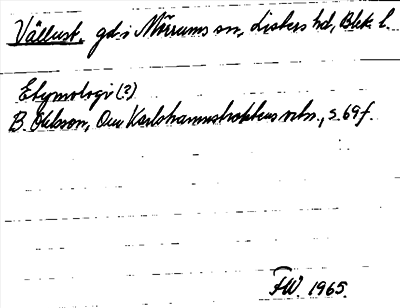 Vällust, gd i Mörrums sn, Listers hd, Blek. l.
Etymologi (?)
B. Ohlsson, Om Karlshamnstraktens nrbn., s. 69 f.
FW. 1965.